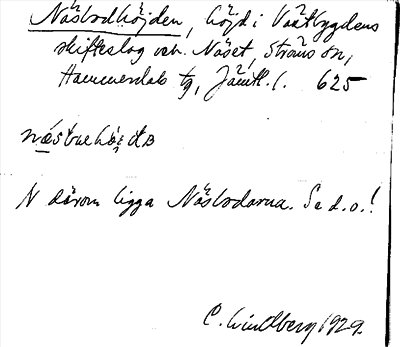 Näsbodhöjden, höjd i Vattbygdens
skifteslag och. Näset, Ströms sn,
Hammerdals tg, Jämtl. l. 625
N därom ligga Näsbodarna. Se d.o.!
C. Lindberg 1929.